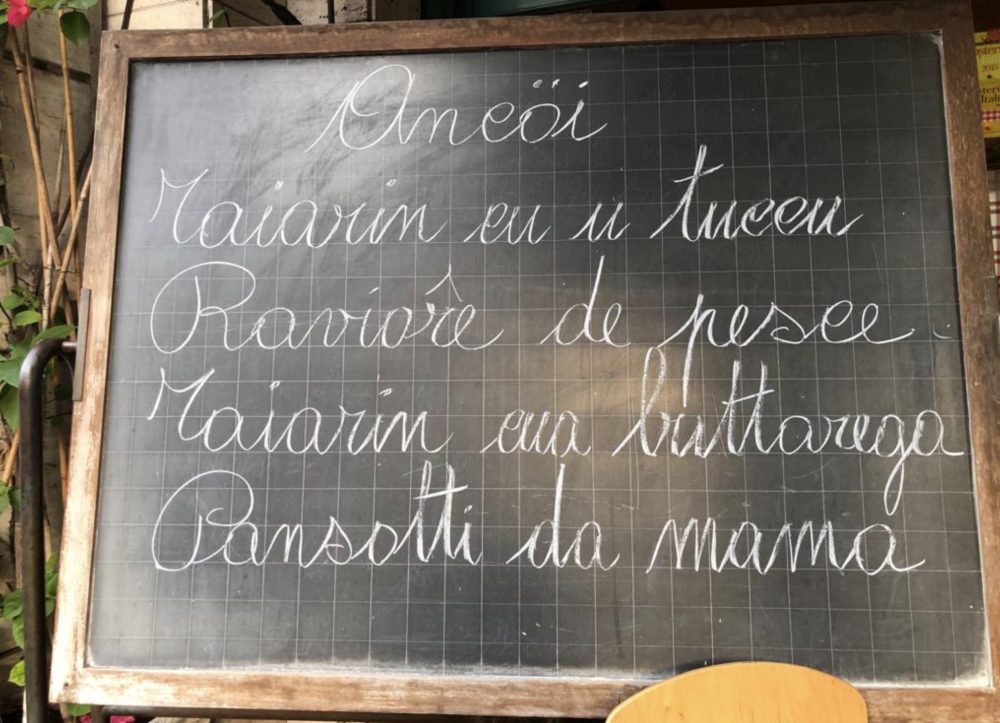 Ancöi
Taiarin cu u tuccu
Raviorê de pesce
Taiarin cua buttarega
Pansotti da mama